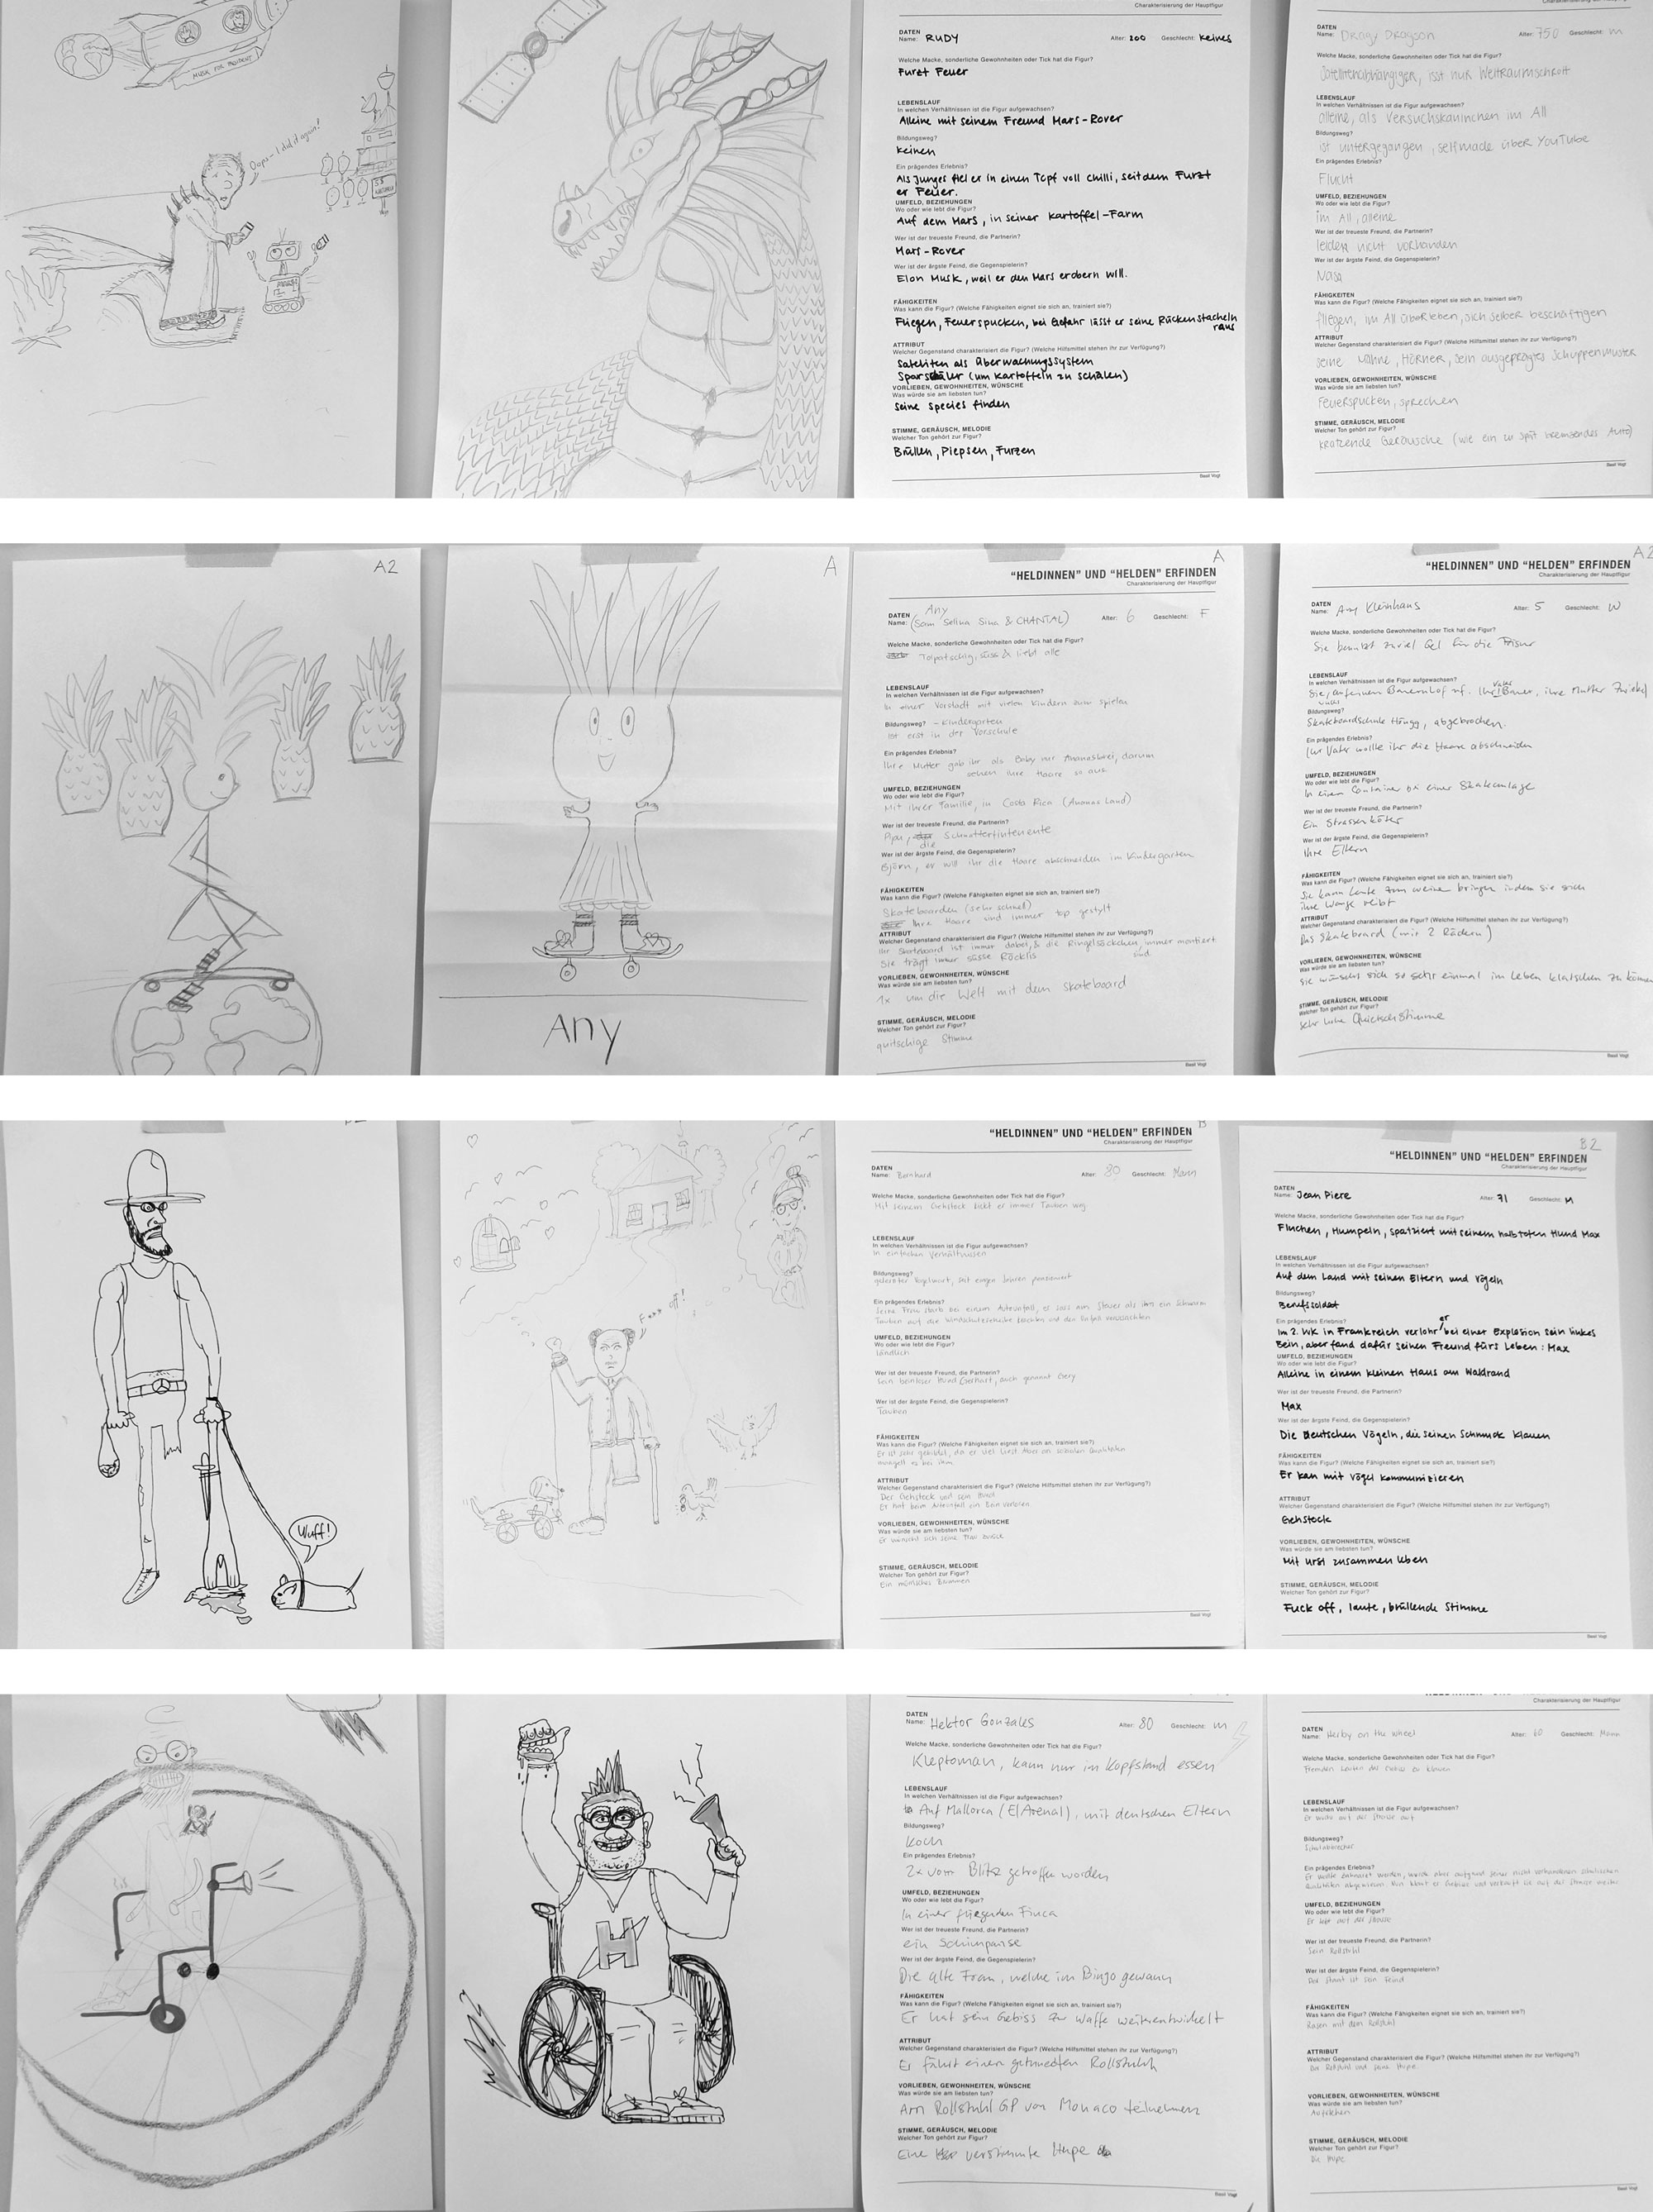 MUSK FOR PRESIDENT
Oops - I did it again!
Charakterisierung der Hauptfigur
DATEN
Name: RUDY Alter: 200 Geschlecht: keines
Welche Macke, sonderliche Gewohnheiten oder Tick hat die Figur?
Furzt Feuer
LEBENSLAUF
In welchen Verhältnissen ist die Figur aufgewachsen?
Alleine mit seinem Freund Mars-Rover
Bildungsweg?
keinen
Ein prägendes Erlebnis?
Als Junges fiel er in einen Topf voll Chilli, seitdem Furzt
er Feuer.
UMFELD, BEZIEHUNGEN
Wo oder wie lebt die Figur?
Auf dem Mars, in seiner Kartoffel-Farm
Wer ist der treueste Freund, die Partnerin?
Mars-Rover
Wer ist der ärgste Feind, die Gegenspielerin?
Elon Musk, weil er den Mars erobern will.
FÄHIGKEITEN
Was kann die Figur? (Welche Fähigkeiten eignet sie sich an, trainiert sie?)
Fliegen, Feuer spucken, bei Gefahr lässt er seine Rückenstacheln
raus
ATTRIBUT
Welcher Gegenstand charakterisiert die Figur? (Welche Hilfsmittel stehen ihr zur Verfügung?)
Sateliten als überwachungssystem
Sparschäler (um Kartoffeln zu schälen)
VORLIEBEN, GEWOHNHEITEN, WÜNSCHE
Was würde sie am liebsten tun?
Seine Species finden
STIMME, GERÄUSCH, MELODIE
Welcher Ton gehört zur Figur?
Brüllen, Piepsen, Furzen
Basil Vogt
Charakterisierung der Hauptfigur
DATEN
Name: Dragy Dragson Alter: 750 Geschlecht: m
Welche Macke, sonderliche Gewohnheiten oder Tick hat die Figur?
Satelitenabhängigen, isst nur Weltraumschrott
LEBENSLAUF
In welchen Verhältnissen ist die Figur aufgewachsen?
alleine, als Versuchskaninchen im All
Bildungsweg?
ist untergegangen, selfmade über YouTube
Ein prägendes Erlebnis?
Flucht
UMFELD, BEZIEHUNGEN
Wo oder wie lebt die Figur?
im All, alleine
Wer ist der treueste Freund, die Partnerin?
leider nicht vorhanden
Wer ist der ärgste Feind, die Gegenspielerin?
Nasa
FÄHIGKEITEN
Was kann die Figur? (Welche Fähigkeiten eignet sie sich an, trainiert sie?)
fliegen, im All überleben, sich selber beschäftigen
ATTRIBUT
Welcher Gegenstand charakterisiert die Figur? (Welche Hilfsmittel stehen ihr zur Verfügung?)
seine Hörner, sein ausgeprägtes Schuppenmuster
VORLIEBEN, GEWOHNHEITEN, WÜNSCHE
Was würde sie am liebsten tun?
Feuerspucken, sprechen
STIMME, GERÄUSCH, MELODIE
Welcher Ton gehört zur Figur?
kratzende Geräusche (wie ein zu spät bremsendes Auto)
Basil Vogt
A2
A
Any
A
"HELDINNEN" UND "HELDEN" ERFINDEN
Charakterisierung der Hauptfigur
Any
DATEN
Name: (Sam Selina Sina & CHANTAL) Alter: 6 Geschlecht: F
Welche Macke, sonderliche Gewohnheiten oder Tick hat die Figur?
Tolpatschig, süss & liebt alle
LEBENSLAUF
In welchen Verhältnissen ist die Figur aufgewachsen?
In einer Vorstadt mit vielen Kindern zum spielen
Bildungsweg? - Kindergarten
ist erst in der Vorschule
Ein prägendes Erlebnis?
Ihre Mutter gab ihr als Baby nur Ananasbrei, darum
sehen ihre Haare so aus
UMFELD, BEZIEHUNGEN
Wo oder wie lebt die Figur?
Mit ihrer Familie, in Costa Rica (Ananas Land)
Wer ist der treueste Freund, die Partnerin?
Pipu, die Schnatterfintenente
Wer ist der ärgste Feind, die Gegenspielerin?
Björn, er will ihr die Haare abschneiden im Kindergarten
FÄHIGKEITEN
Was kann die Figur? (Welche Fähigkeiten eignet sie sich an, trainiert sie?)
Skateboarden (sehr schnell)
Ihre Haare sind immer top gestylt
ATTRIBUT
Welcher Gegenstand charakterisiert die Figur? (Welche Hilfsmittel stehen ihr zur Verfügung?)
Ihr Skateboard ist immer dabei, & die Ringelsöckchen, immer montiert
Sie trägt immer süsse Röcklis sind.
VORLIEBEN, GEWOHNHEITEN, WÜNSCHE
Was würde sie am liebsten tun?
1x um die Welt mit dem Skateboard
STIMME, GERÄUSCH, MELODIE
Welcher Ton gehört zur Figur?
quitschige Stimme
Basil Vogt
A2
"HELDINNEN" UND "HELDEN" ERFINDEN
Charakterisierung der Hauptfigur
DATEN
Name: Any Kleinhaus Alter: 5 Geschlecht: W
Welche Macke, sonderliche Gewohnheiten oder Tick hat die Figur?
Sie benutzt zuviel Gel für die Frisur
LEBENSLAUF
In welchen Verhältnissen ist die Figur aufgewachsen?
Sie wuchs auf einem Bauernhof auf. Ihr Vater Bauer, ihre Mutter Zwiebel
Bildungsweg?
Skateboardschule Höngg, abgebrochen.
Ein prägendes Erlebnis?
Ihr Vater wollte ihr die Haare abschneiden
UMFELD, BEZIEHUNGEN
Wo oder wie lebt die Figur?
In einem Container bei einer Skateanlage
Wer ist der treueste Freund, die Partnerin?
Ein Strassenköter
Wer ist der ärgste Feind, die Gegenspielerin?
Ihre Eltern
FÄHIGKEITEN
Was kann die Figur? (Welche Fähigkeiten eignet sie sich an, trainiert sie?)
Sie kann Leute zum weinen bringen indem sie sich
ihre Wange reibt
ATTRIBUT
Welcher Gegenstand charakterisiert die Figur? (Welche Hilfsmittel stehen ihr zur Verfügung?)
Das Skateboard (mit 2 Rädern)
VORLIEBEN, GEWOHNHEITEN, WÜNSCHE
Was würde sie am liebsten tun?
Sie wünscht sich so sehr einmal im Leben klatschen zu können
STIMME, GERÄUSCH, MELODIE
Welcher Ton gehört zur Figur?
sehr hohe Quietschstimme
Basil Vogt
Wuff!
F*** off!
B
"HELDINNEN" UND "HELDEN" ERFINDEN
Charakterisierung der Hauptfigur
DATEN
Name: Bernhard Alter: 80 Geschlecht: Mann
Welche Macke, sonderliche Gewohnheiten oder Tick hat die Figur?
Mit seinem Gehstock kickt er immer Tauben weg
LEBENSLAUF
In welchen Verhältnissen ist die Figur aufgewachsen?
In einfachen Verhältnissen
Bildungsweg?
gelernter Vogelwart, seit einigen Jahren pensioniert
Ein prägendes Erlebnis?
Seine Frau starb bei einem Autounfall, er sass am Steuer als ihm ein Schwarm
Tauben auf die Windschutzscheibe und den Unfall verursachten
UMFELD, BEZIEHUNGEN
Wo oder wie lebt die Figur?
ländlich
Wer ist der treueste Freund, die Partnerin?
Sein beinloser Hund Gerhart, auch genannt Gery
Wer ist der ärgste Feind, die Gegenspielerin?
Tauben
FÄHIGKEITEN
Was kann die Figur? (Welche Fähigkeiten eignet sie sich an, trainiert sie?)
Er ist sehr gebildet, da er viel liest. Aber an sozialen Qualitäten
mangelt es bei ihm.
ATTRIBUT
Welcher Gegenstand charakterisiert die Figur? (Welche Hilfsmittel stehen ihr zur Verfügung?)
Der Gehstock und sein Hund
Er hat beim Autounfall ein Bein verloren.
VORLIEBEN, GEWOHNHEITEN, WÜNSCHE
Was würde sie am liebsten tun?
Er wünscht sich seine Frau zurück
STIMME, GERÄUSCH, MELODIE
Welcher Ton gehört zur Figur?
Ein mürrisches Brummen
Basil Vogt
B2
"HELDINNEN" UND "HELDEN" ERFINDEN
Charakterisierung der Hauptfigur
DATEN
Name: Jean Piere Alter: 71 Geschlecht: M
Welche Macke, sonderliche Gewohnheiten oder Tick hat die Figur?
Fluchen, Humpeln, spatziert mit seinem halbtoten Hund Max
LEBENSLAUF
In welchen Verhältnissen ist die Figur aufgewachsen?
Auf dem Land mit seinen Eltern und Vögeln
Bildungsweg?
Berufssoldat
Ein prägendes Erlebnis?
Im 2. WK in Frankreich verlohr er bei einer Explosion sein linkes
Bein, aber fand dafür seinen Freund fürs Leben: Max
UMFELD, BEZIEHUNGEN
Wo oder wie lebt die Figur?
Alleine in einem kleinen Haus am Waldrand
Wer ist der treueste Freund, die Partnerin?
Max
Wer ist der ärgste Feind, die Gegenspielerin?
Die deutschen Vögeln, die seinen Schmuck klauen
FÄHIGKEITEN
Was kann die Figur? (Welche Fähigkeiten eignet sie sich an, trainiert sie?)
Er kan mit Vögel kommunizieren
ATTRIBUT
Welcher Gegenstand charakterisiert die Figur? (Welche Hilfsmittel stehen ihr zur Verfügung?)
Gehstock
VORLIEBEN, GEWOHNHEITEN, WÜNSCHE
Was würde sie am liebsten tun?
Mit Ursi zusammen leben
STIMME, GERÄUSCH, MELODIE
Welcher Ton gehört zur Figur?
Fuck off, laute, brüllende Stimme
Basil Vogt
H
DATEN
Name: Hektor Gonzales Alter: 80 Geschlecht: m
Welche Macke, sonderliche Gewohnheiten oder Tick hat die Figur?
Kleptoman, kann nur im Kopfstand essen
LEBENSLAUF
In welchen Verhältnissen ist die Figur aufgewachsen?
Auf Mallorca (El Arenal), mit deutschen Eltern
Bildungsweg?
Koch
Ein prägendes Erlebnis?
2x vom Blitz getroffen worden
UMFELD, BEZIEHUNGEN
Wo oder wie lebt die Figur?
In einer fliegenden Finca
Wer ist der treueste Freund, die Partnerin?
ein Schimpanse
Wer ist der ärgste Feind, die Gegenspielerin?
Die alte Frau, welche im Bingo gewann
FÄHIGKEITEN
Was kann die Figur? (Welche Fähigkeiten eignet sie sich an, trainiert sie?)
Er hat sein Gebiss zur Waffe weiterentwickelt
ATTRIBUT
Welcher Gegenstand charakterisiert die Figur? (Welche Hilfsmittel stehen ihr zur Verfügung?)
Er fährt einen getunedten Rollstuhl
VORLIEBEN, GEWOHNHEITEN, WÜNSCHE
Was würde sie am liebsten tun?
Am Rollstuhl GP von Monaco teilnehmen
STIMME, GERÄUSCH, MELODIE
Welcher Ton gehört zur Figur?
Eine verstimmte Hupe
Basil Vogt
Charakterisierung der Hauptfigur
DATEN
Name: Herby on the wheel Alter: 60 Geschlecht: Mann
Welche Macke, sonderliche Gewohnheiten oder Tick hat die Figur?
Fremden Leuten das Gebiss zu klauen
LEBENSLAUF
In welchen Verhältnissen ist die Figur aufgewachsen?
Er wuchs auf der Strasse auf
Bildungsweg?
Schulabbrecher
Ein prägendes Erlebnis?
Er wollte Zahnarzt werden, wurde aber aufgrund seiner nicht vorhandenen schulischen
Qualitäten abgewiesen. Nun klaut er Gebisse und verkauft sie auf der Strasse weiter
UMFELD, BEZIEHUNGEN
Wo oder wie lebt die Figur?
Er lebt auf der Strasse
Wer ist der treueste Freund, die Partnerin?
Sein Rollstuhl
Wer ist der ärgste Feind, die Gegenspielerin?
Der Staat ist sein Feind
FÄHIGKEITEN
Was kann die Figur? (Welche Fähigkeiten eignet sie sich an, trainiert sie?)
Rasen mit dem Rollstuhl
ATTRIBUT
Welcher Gegenstand charakterisiert die Figur? (Welche Hilfsmittel stehen ihr zur Verfügung?)
Der Rollstuhl und seine Hupe
VORLIEBEN, GEWOHNHEITEN, WÜNSCHE
Was würde sie am liebsten tun?
STIMME, GERÄUSCH, MELODIE
Welcher Ton gehört zur Figur?
Die Hupe
Basil Vogt